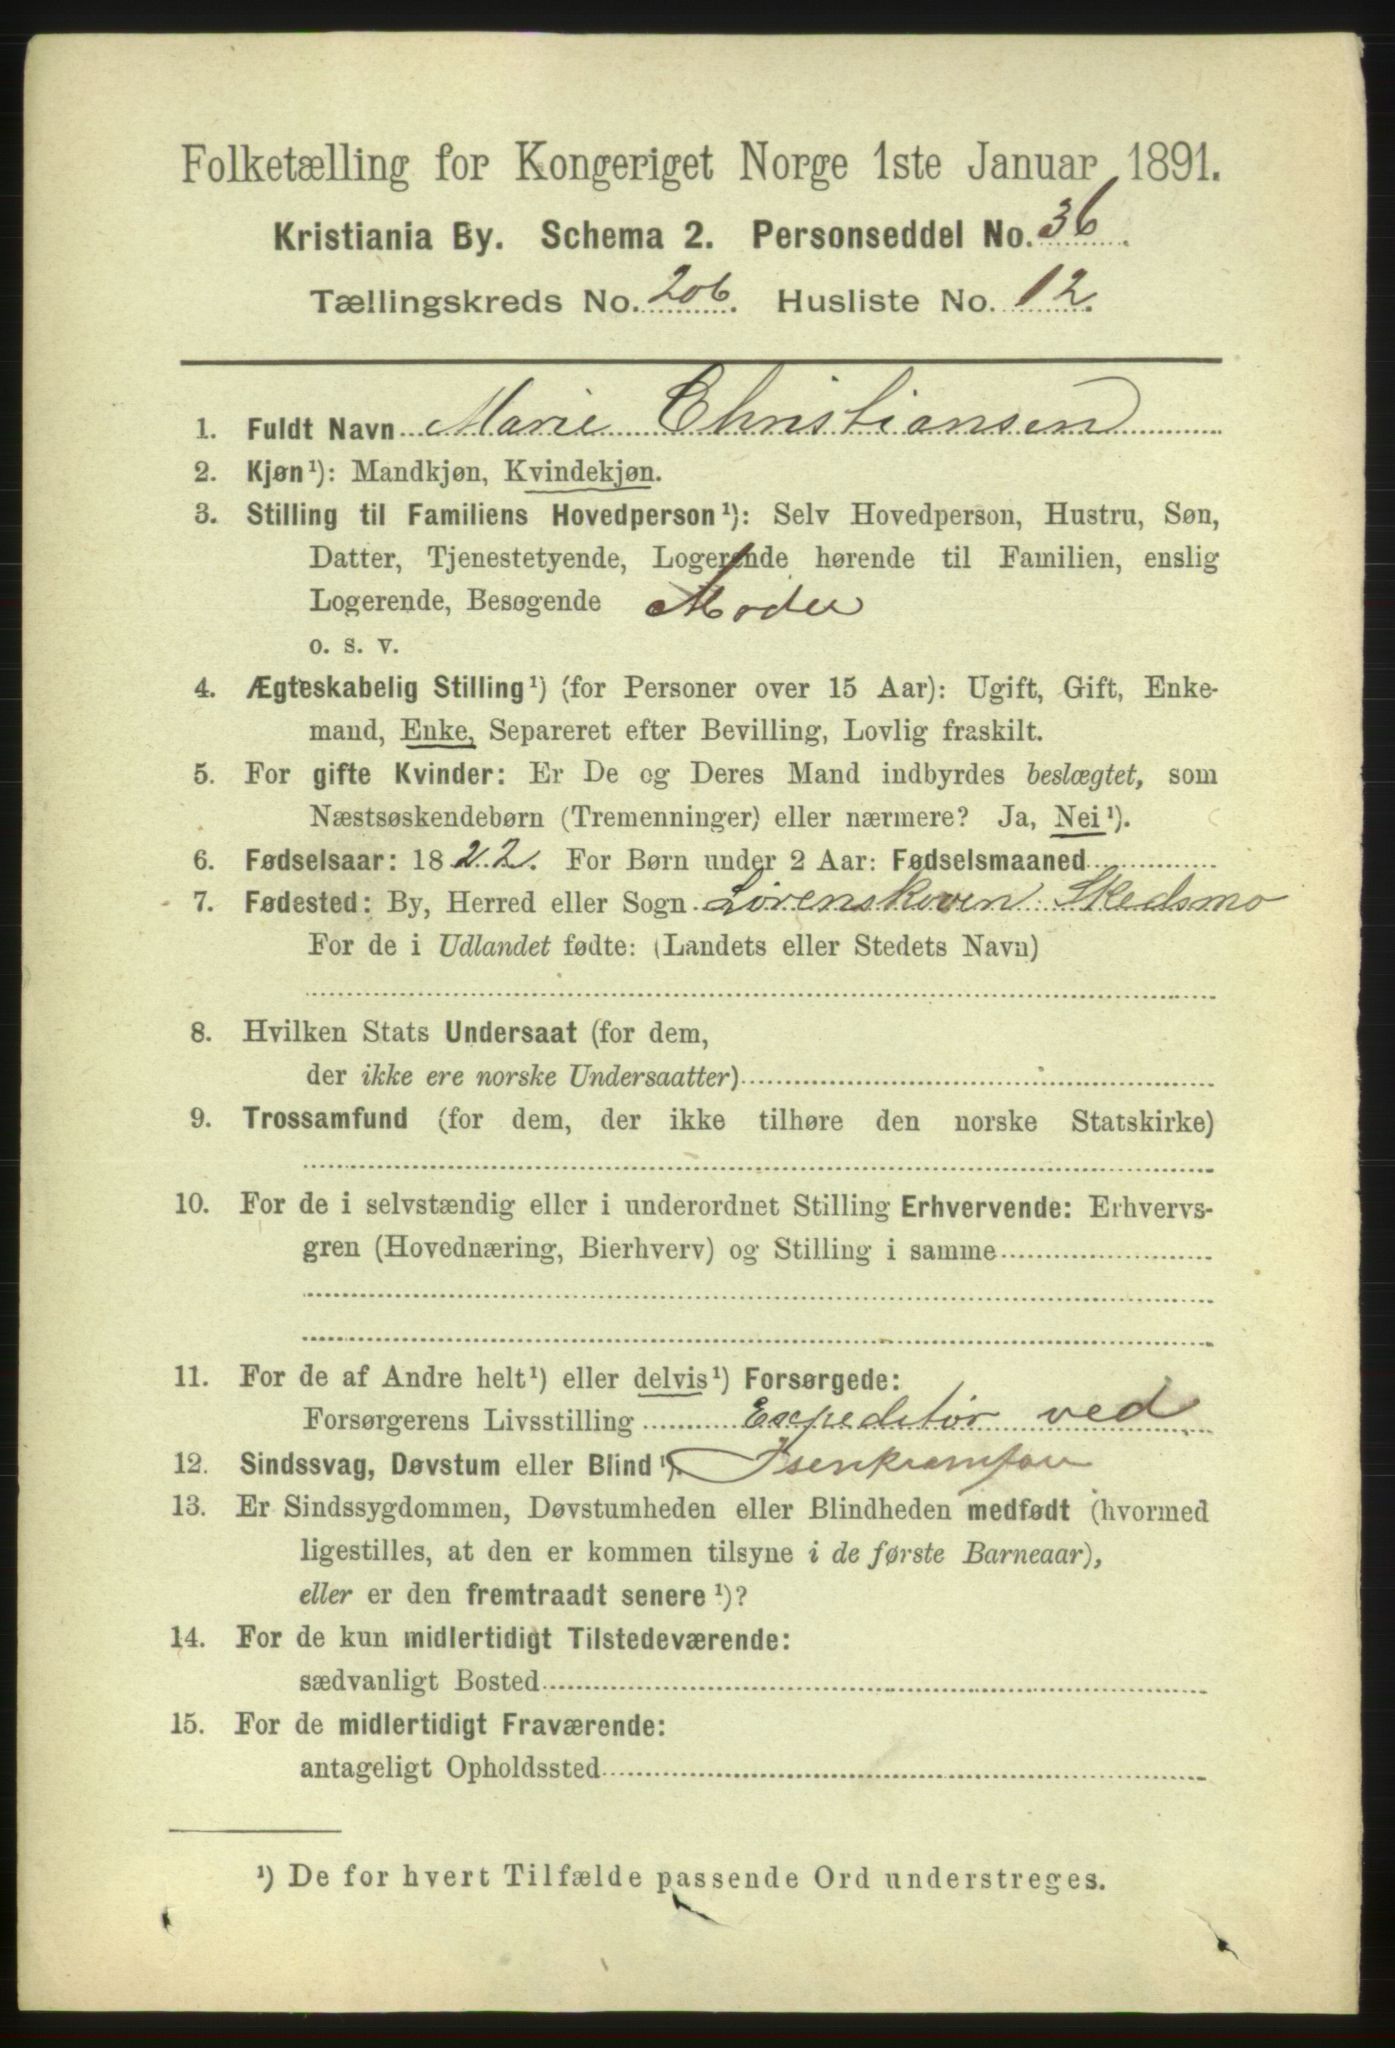 Folketælling for Kongeriget Norge 1ste Januar 1891.
Kristiania By. Schema 2. Personseddel No. 36.
Tællingskreds No. 206. Husliste No. 12.
1. Fuldt Navn Marie Christiansen
2. Kjøn¹): Mandkjøn, Kvindekjøn.
3. Stilling til Familiens Hovedperson¹): Selv Hovedperson, Hustru, Søn,
Datter, Tjenestetyende, Logerende hørende til Familien, enslig
Logerende, Besøgende Moder
o. s. v.
4. Ægteskabelig Stilling¹) (for Personer over 15 Aar): Ugift, Gift, Enke-
mand, Enke, Separeret efter Bevilling, Lovlig fraskilt.
5. For gifte Kvinder: Er De og Deres Mand indbyrdes beslægtet, som
Næstsøskendebørn (Tremenninger) eller nærmere? Ja, Nei¹).
6. Fødselsaar: 1822. For Børn under 2 Aar: Fødselsmaaned
7. Fødested: By, Herred eller Sogn Lørenskoven Skedsmo
For de i Udlandet fødte: (Landets eller Stedets Navn)
8. Hvilken Stats Undersaat (for dem,
der ikke ere norske Undersaatter)
9. Trossamfund (for dem, der ikke tilhøre den norske Statskirke)
10. For de i selvstændig eller i underordnet Stilling Erhvervende: Erhvervs-
gren (Hovednæring, Bierhverv) og Stilling i samme
11. For de af Andre helt¹) eller delvis¹) Forsørgede:
Forsørgerens Livsstilling Expeditør ved
12. Sindssvag, Døvstum eller Blind¹).
13. Er Sindssygdommen, Døvstumheden eller Blindheden medfødt (hvormed
ligestilles, at den er kommen tilsyne i de første Barneaar),
eller er den fremtraadt senere¹)?
14. For de kun midlertidigt Tilstedeværende:
sædvanligt Bosted
15. For de midlertidigt Fraværende:
antageligt Opholdssted
¹) De for hvert Tilfælde passende Ord understreges.